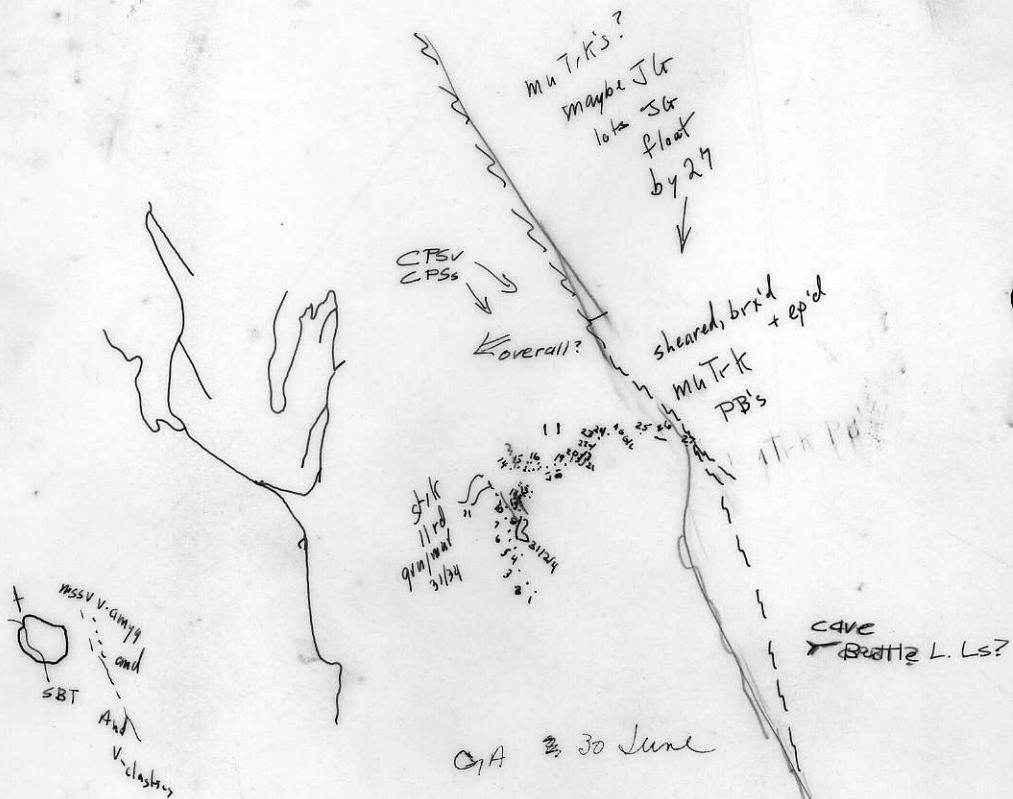 mu TrK's?
maybe JG
lots JG
float
by 27
CPSv
CPSs
overall?
sheared, brx'd
+ ep'd
mu TrK
PB's
11
25
26
27
16
15
stlk
llrd
grn/mut
31/34
31/2/4
8
7
6
5
4
3
2
1
mssv v. amyg
and
SBT
And
V-clastics
cave
Battle L. Ls?
GA 30 June